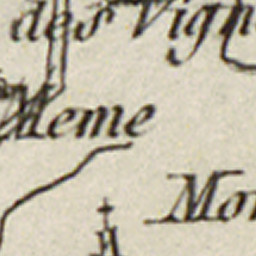 des Vign
Meme
Mon